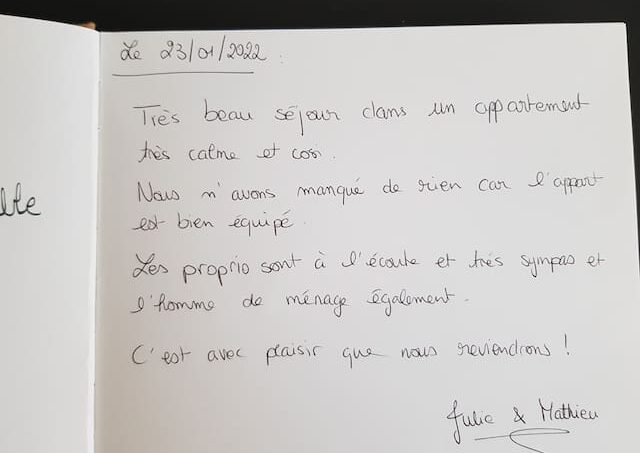 Le 23/01/2022 :
Très beau séjour dans un appartement
très calme et cosi.
Nous n'avons manqué de rien car l'appart
est bien équipé.
Les proprio sont à l'écoute et très sympas et
l'homme de ménage également.
C'est avec plaisir que nous reviendrons !
Julie & Mathieu